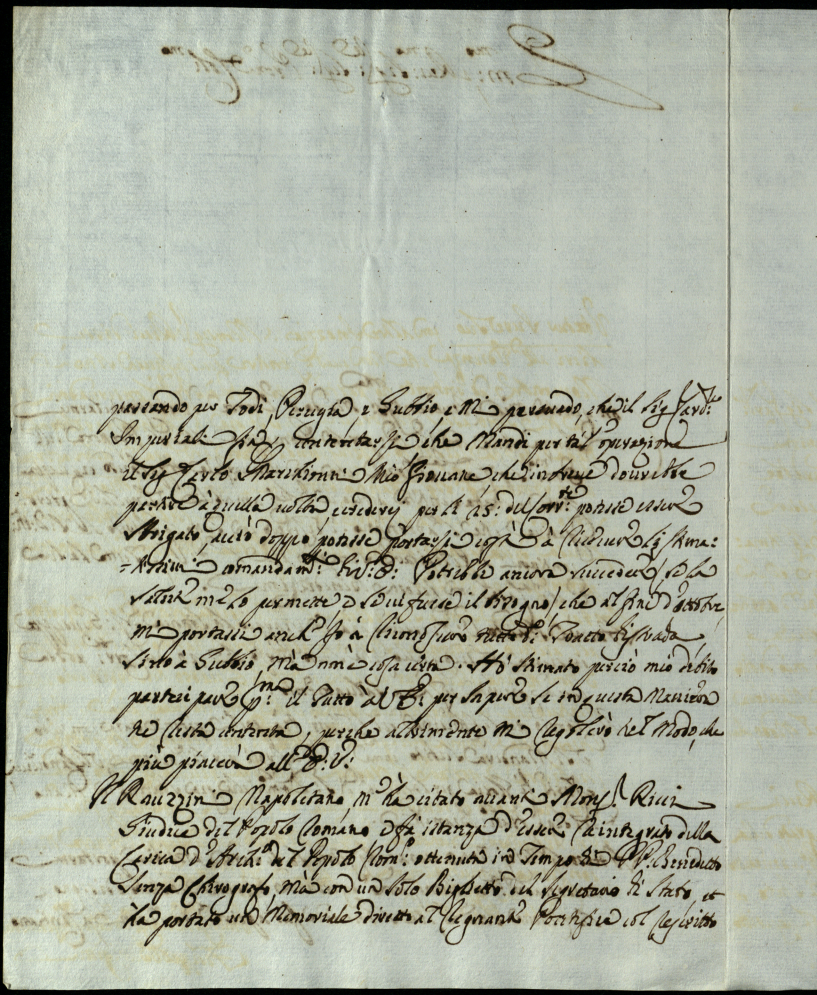 passando per Todi, Perugia, e Gubbio e mi persuado, che il Sig.r Card.le
Imperiali sia contentarsi che mandi per tal operazione
il Sig.r Carlo Marchionni mio Giovane che in breve dovrebbe
partire à quella volta e crederei per li 15: del corr.te potesse esser
sbrigato, acciò doppo potesse portarsi costà à ricever li stima=
=tissimi comandam.ti di V: E: Potrebbe ancora succeder / se la
salute me lo permette e se vi fusse il bisogno / che al fine d'ottobre
mi portassi anch'Io à riconoscer tutto q.to tratto di strada
sino à Gubbio, mà non è cosa certa. Hò stimato perciò mio debito
partecipare p.ma il tutto à V: E: per saper se in questa maniera
ne resta contenta, perche altrimente mi regolerò nel modo, che
più piacerà all'E: V:
Il Rauzzini Napoletano m'hà citato avanti Mons.r Ricci
Giudice del Popolo Romano e fà istanza d'esser reintegrato della
Carica d'Archi.to del Popolo Rom.o ottenuta in tempo di PP. Benedetto
senza Chirografo, mà con un solo Biglietto del Segretario di Stato, et
hà portato un Memoriale diretto al Regnante Pontefice col rescritto